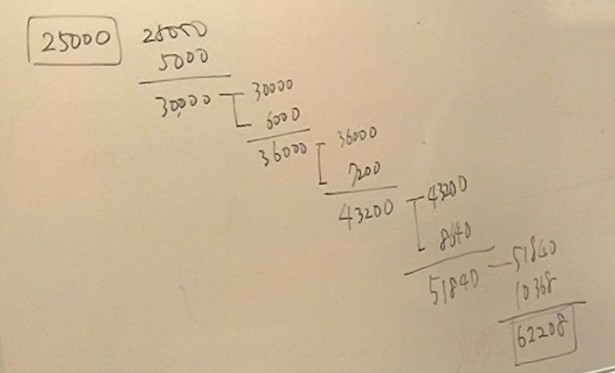 25000
25000
5000
30,000
30000
6000
36000
36000
7200
43200
43200
8640
51840
51840
10368
62208